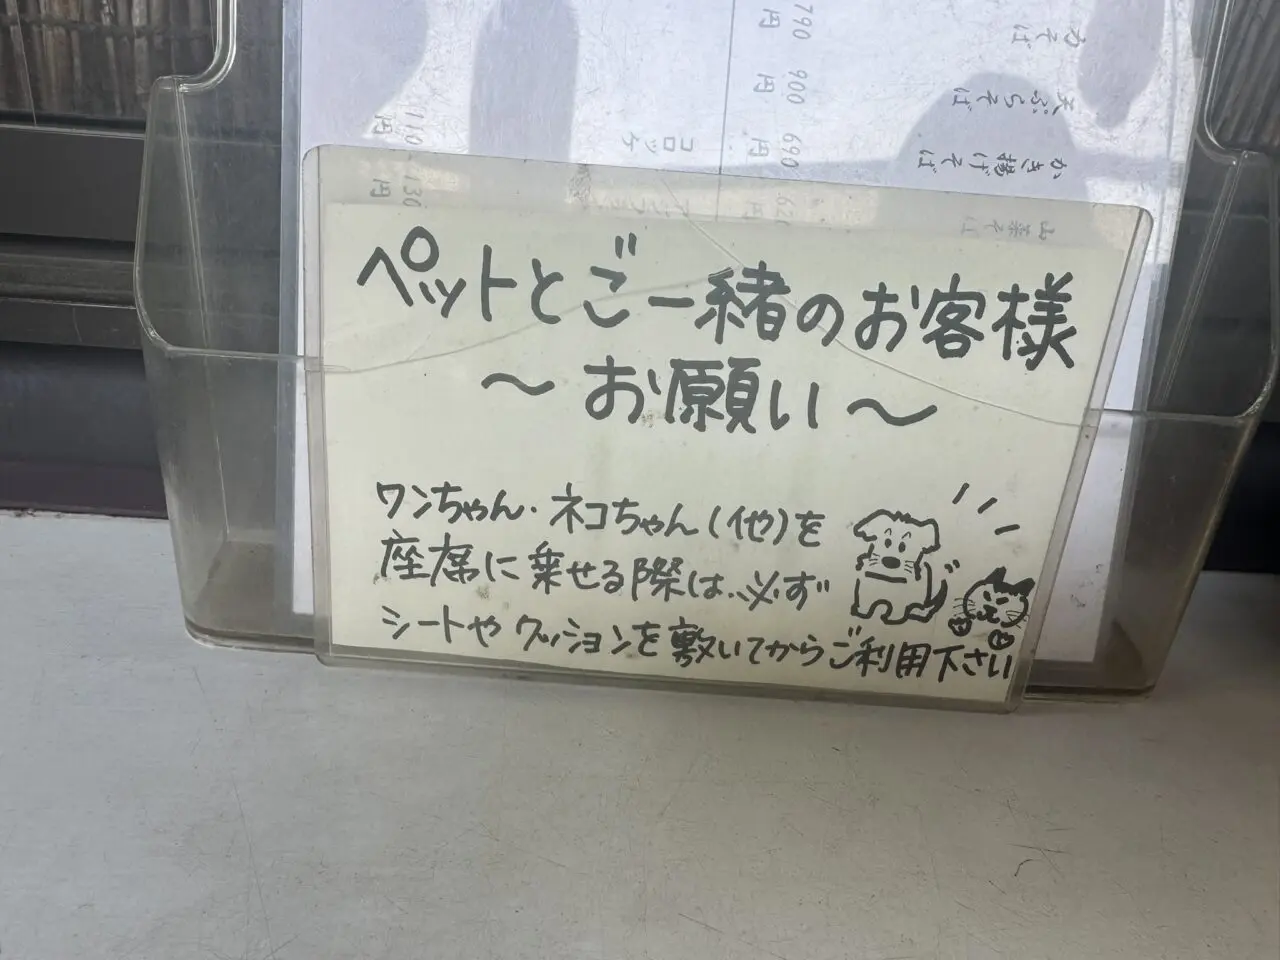 ペットとご一緒のお客様
〜お願い〜
ワンちゃん・ネコちゃん(他)を
座席に乗せる際は、必ず
シートやクッションを敷いてからご利用下さい
力そば 790円
天ぷらそば 900円
かき揚げそば 690円
山菜そば
コロッケ 110円
130円